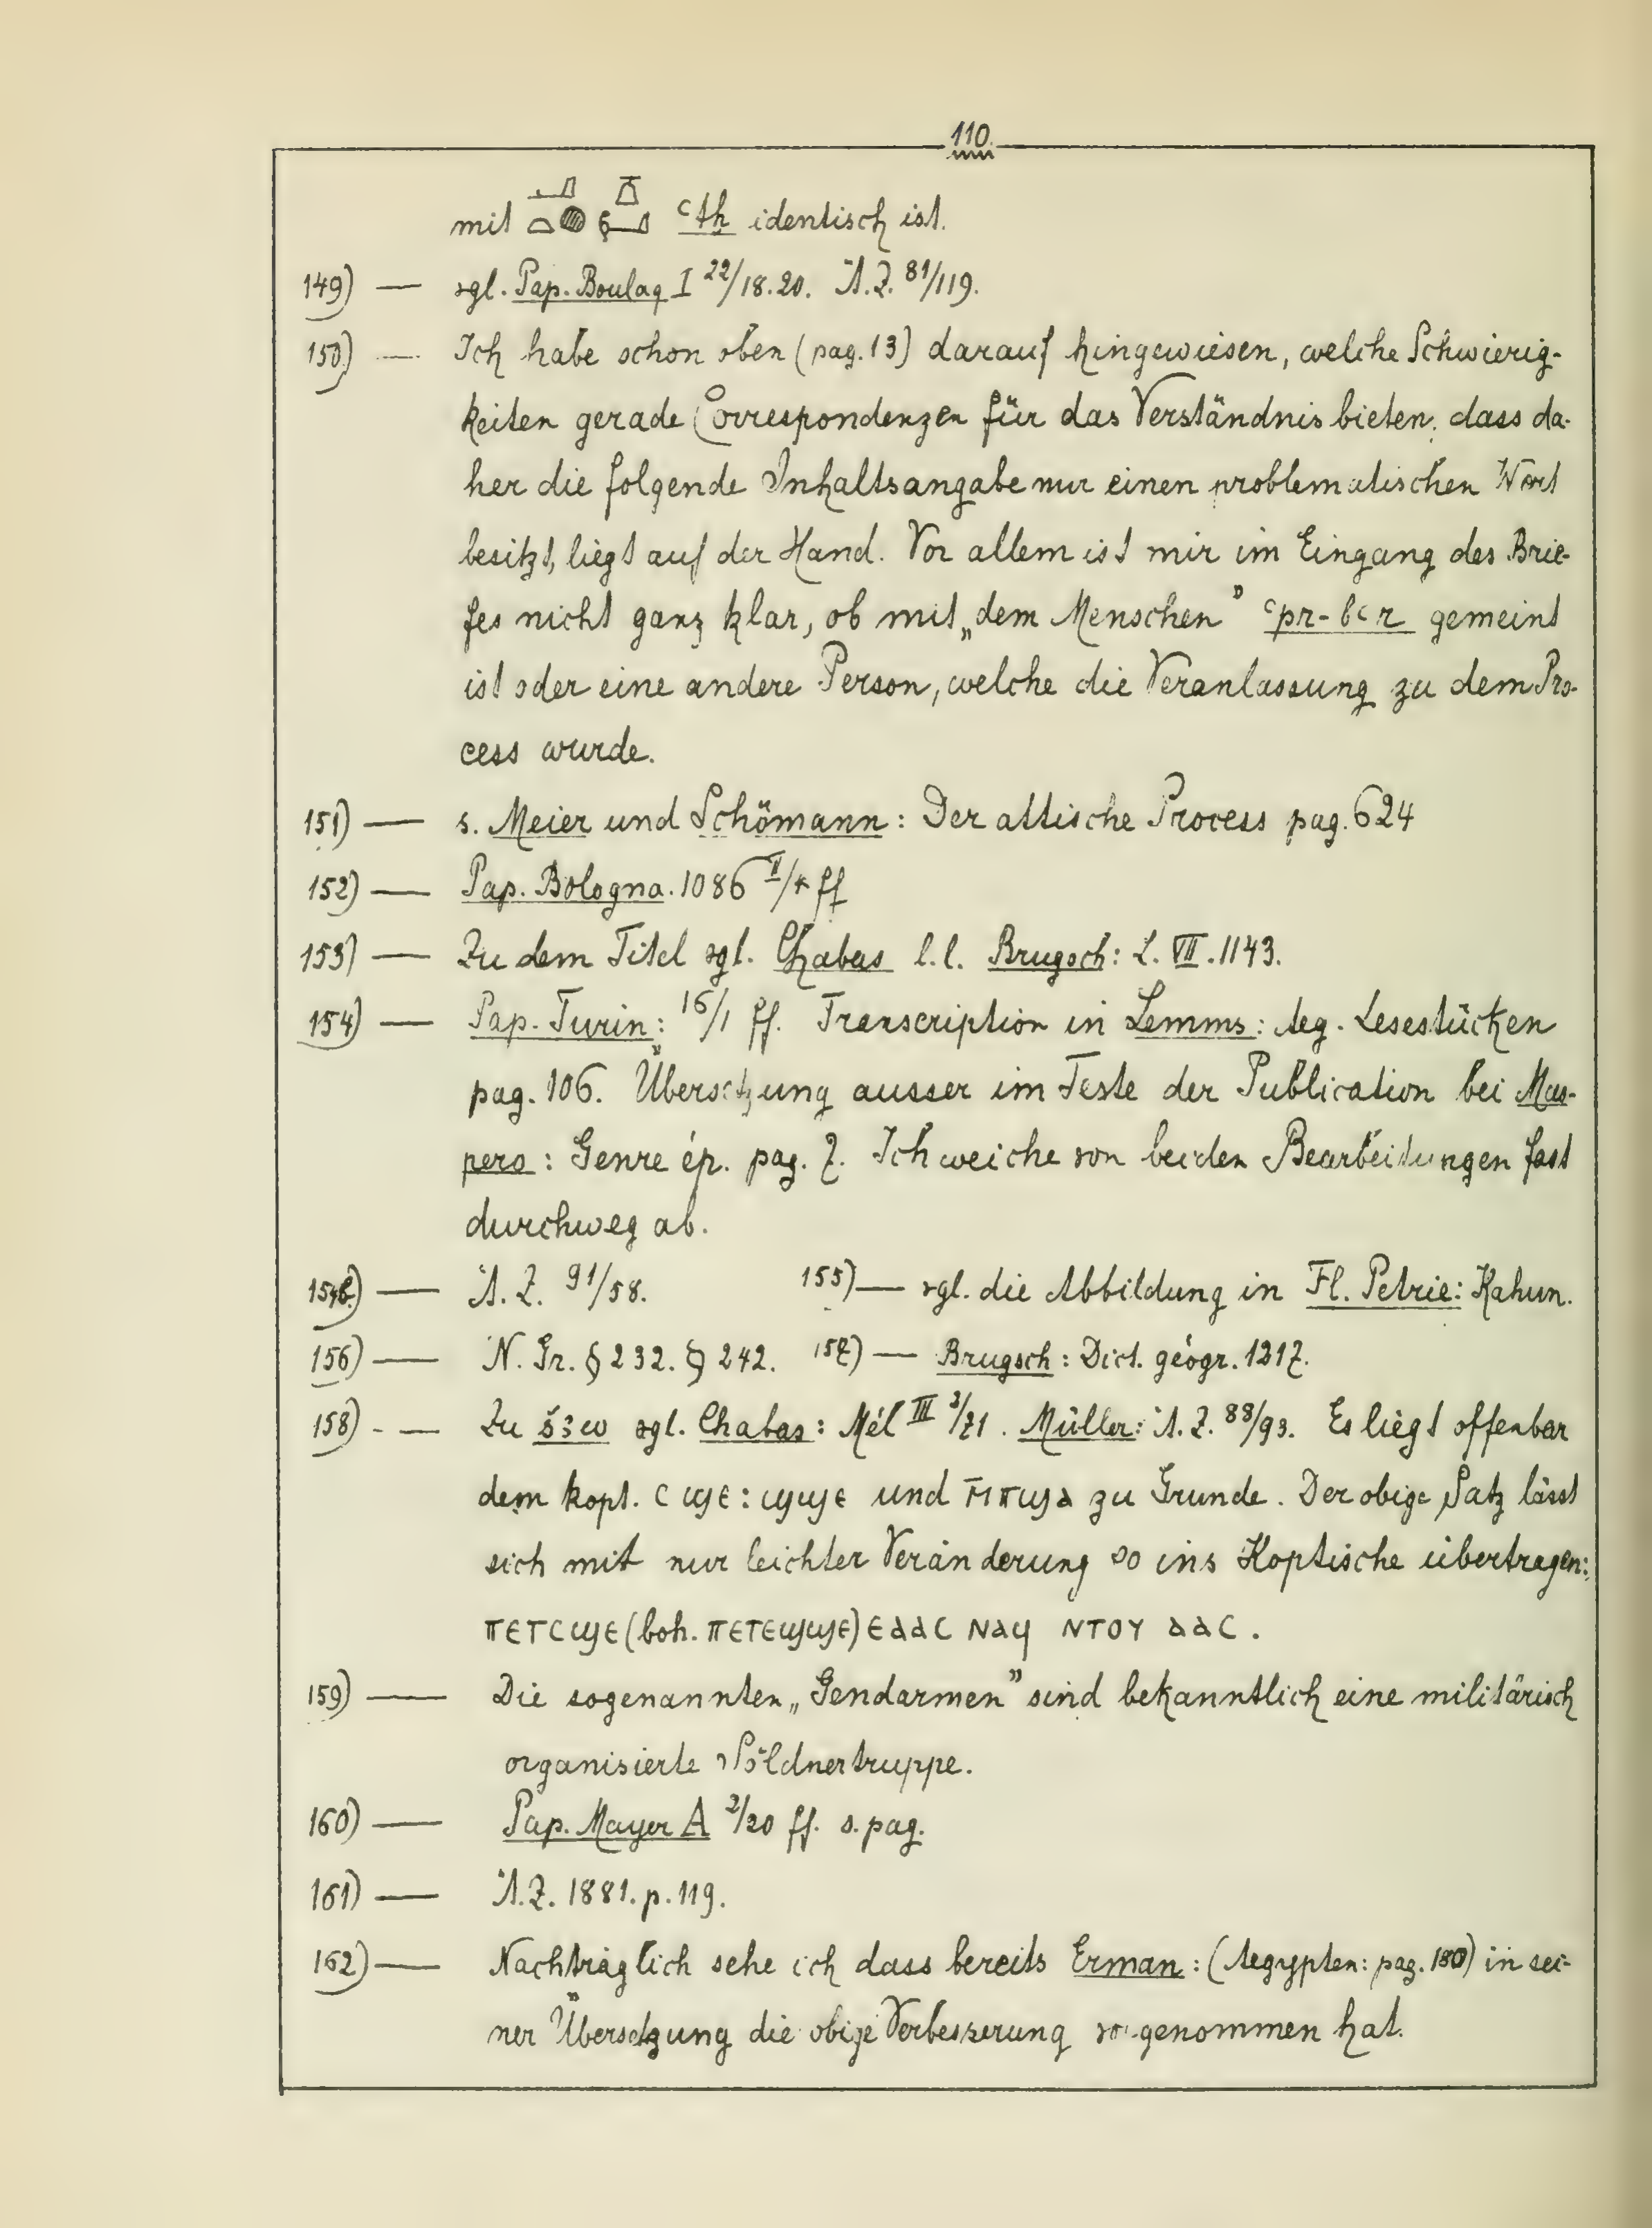 110.
mit ꜥth identisch ist.
149) — vgl. Pap. Boulaq I 22/18.20. Ä.Z. 81/119.
150) — Ich habe schon oben (pag. 13) darauf hingewiesen, welche Schwierig-
keiten gerade Correspondenzen für das Verständnis bieten, dass da-
her die folgende Inhaltsangabe nur einen problematischen Wert
besitzt, liegt auf der Hand. Vor allem ist mir im Eingang des Brie-
fes nicht ganz klar, ob mit „dem Menschen” ꜥpr-bꜥr gemeint
ist oder eine andere Person, welche die Veranlassung zu dem Pro-
cess wurde.
151) — s. Meier und Schömann: Der attische Process pag. 624
152) — Pap. Bologna. 1086 ff
153) — Zu dem Titel vgl. Chabas l.l. Brugsch: L. VII. 1143.
154) — Pap. Turin: 16/1 ff. Transcription in Lemms: Aeg. Lesestücken
pag. 106. Übersetzung ausser im Texte der Publication bei Mas-
pero: Genre ép. pag. 7. Ich weiche von beiden Bearbeitungen fast
durchweg ab.
154b) — Ä.Z. 91/58. 155) — vgl. die Abbildung in Fl. Petrie: Kahun.
156) — N. Gr. § 232. § 242. 157) — Brugsch: Dict. géogr. 1217.
158) — Zu š3w vgl. Chabas: Mél III 2/21. Müller: Ä.Z. 88/93. Es liegt offenbar
dem kopt. ⲥϣⲉ: ϣϣⲉ und ⲙ̄ⲡϣⲁ zu Grunde. Der obige Satz lässt
sich mit nur leichter Veränderung so ins Koptische übertragen:
ⲡⲉⲧⲥϣⲉ (boh. ⲡⲉⲧⲉϣϣⲉ) ⲉⲁⲁⲥ ⲛⲁϥ ⲛⲧⲟⲩ ⲁⲁⲥ.
159) — Die sogenannten „Gendarmen” sind bekanntlich eine militärisch
organisierte Söldnertruppe.
160) — Pap. Mayer A 2/20 ff. s. pag.
161) — Ä.Z. 1881. p. 119.
162) — Nachträglich sehe ich dass bereits Erman: (Aegypten: pag. 180) in sei-
ner Übersetzung die obige Verbesserung vorgenommen hat.